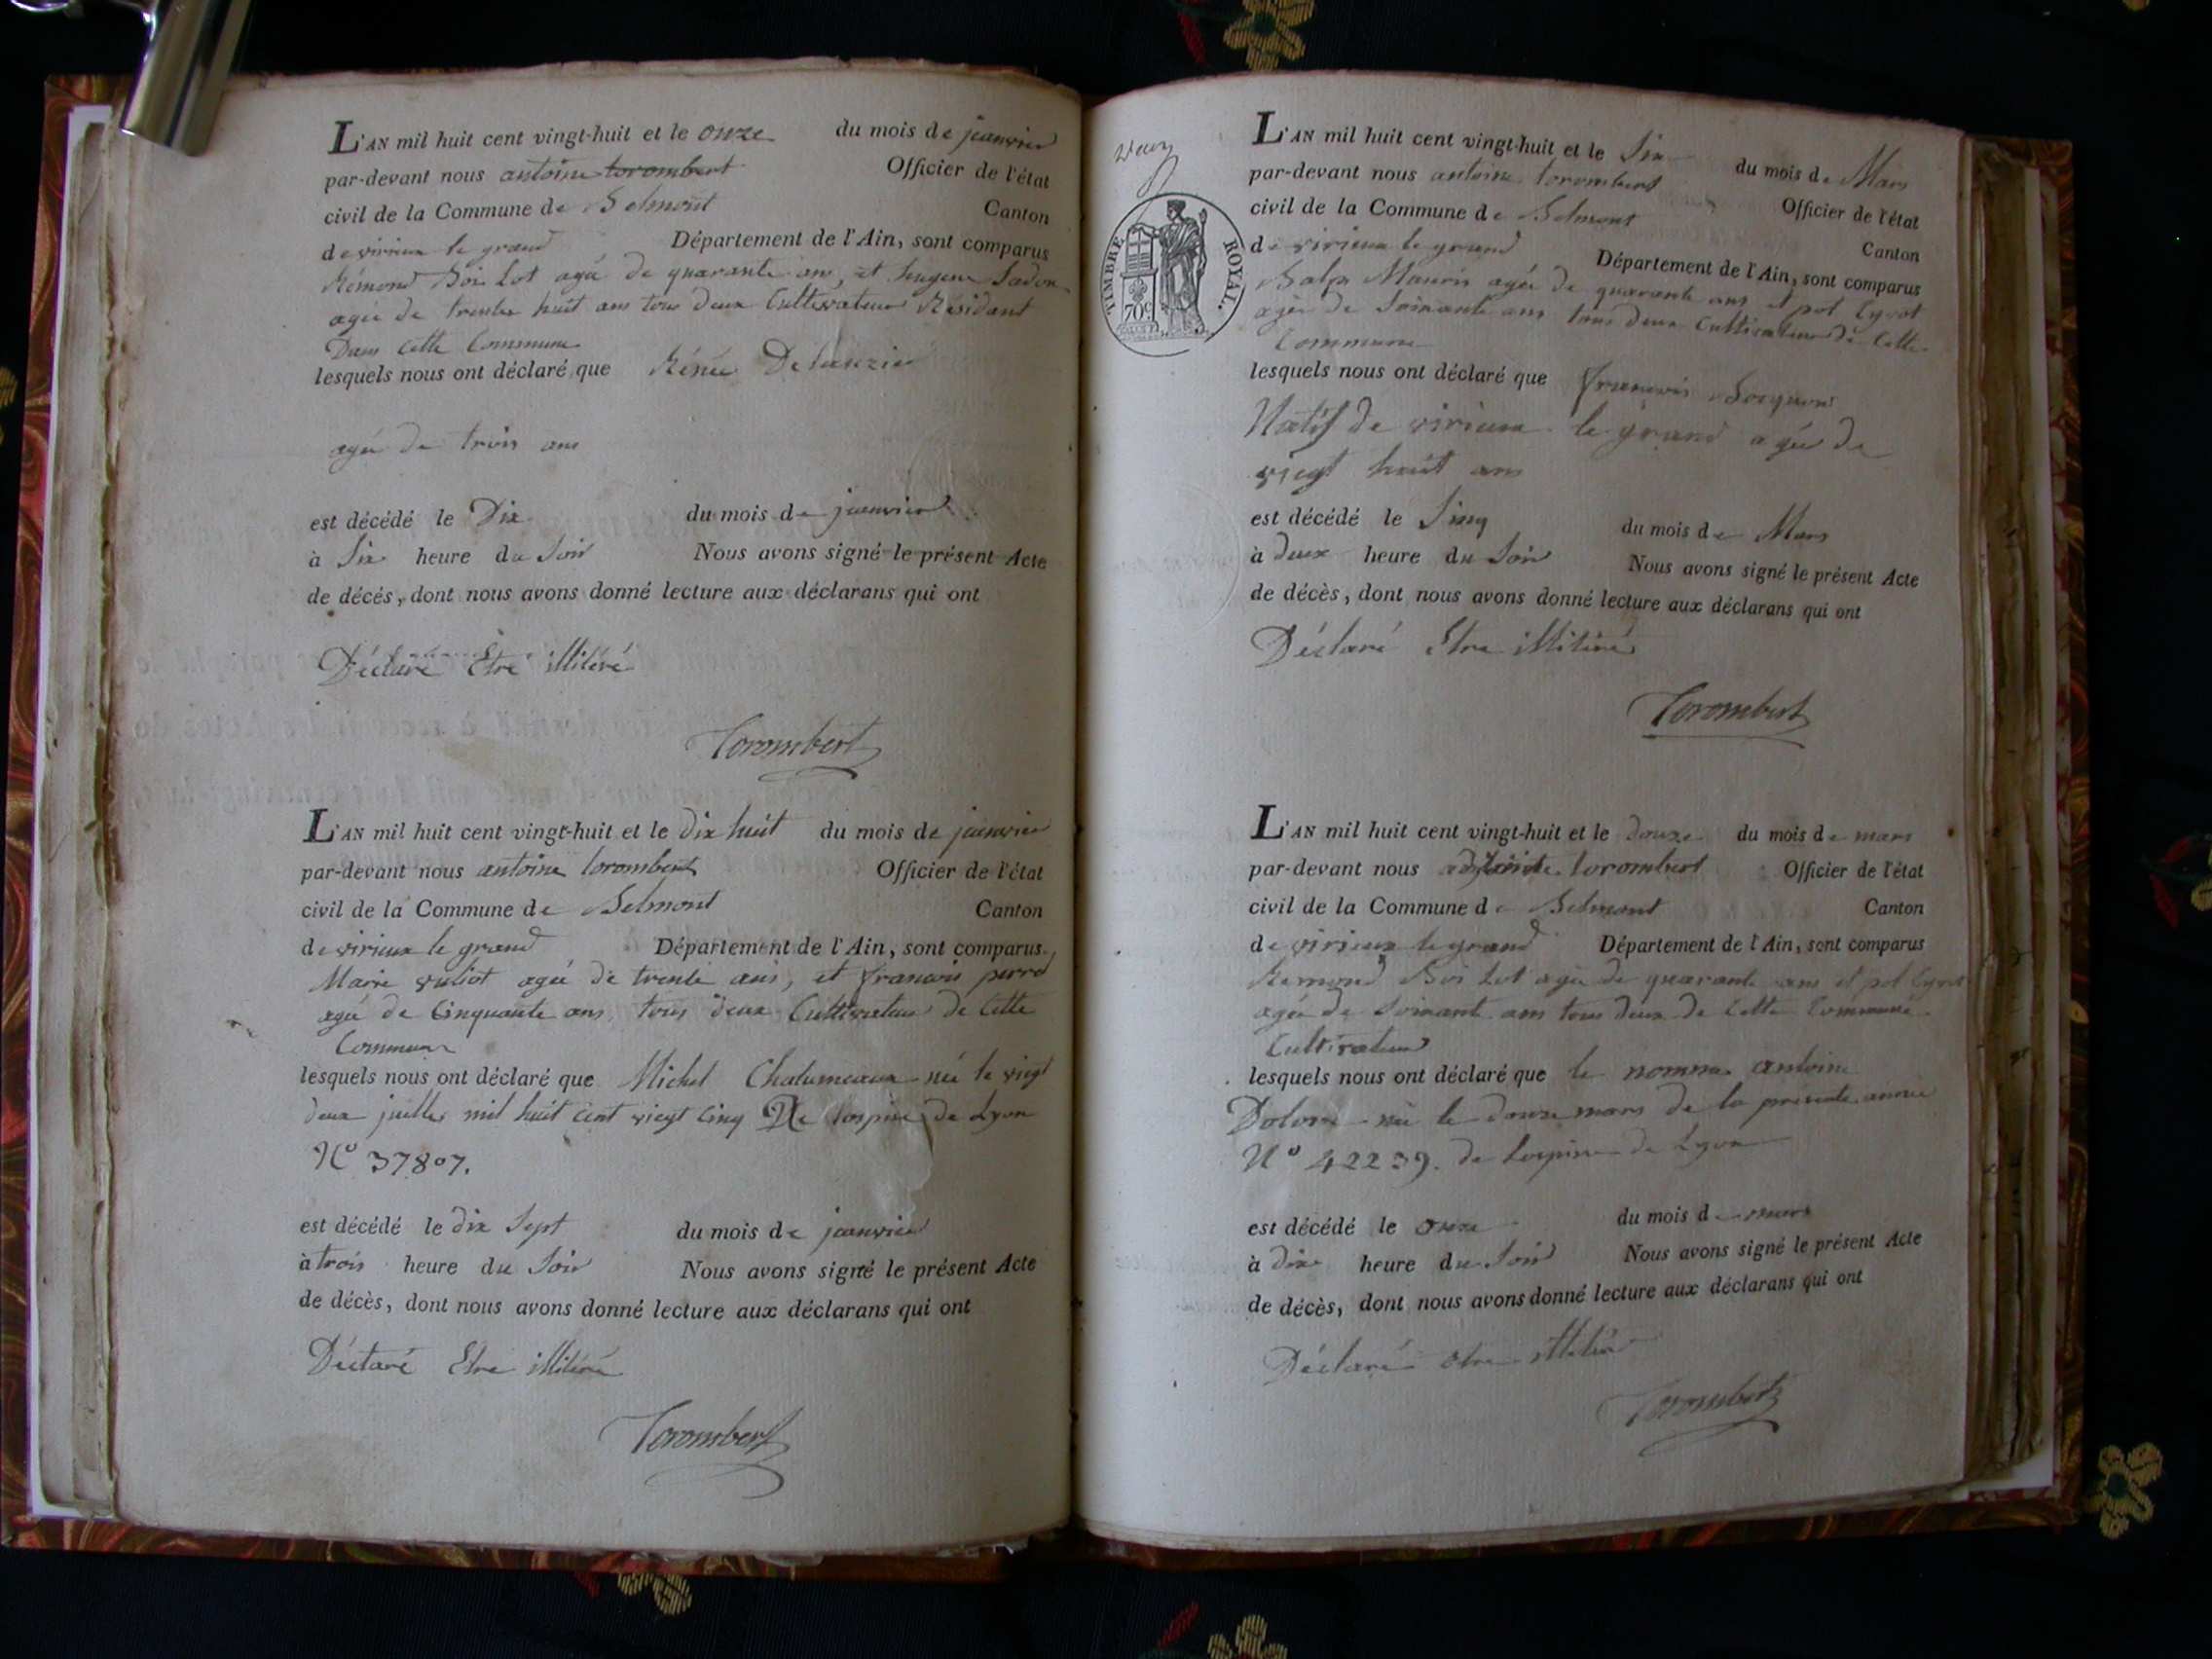 L'AN mil huit cent vingt-huit et le onze du mois de janvier
par-devant nous antoine torombert Officier de l'état
civil de la Commune de Belmont Canton
de virieux le grand Département de l'Ain, sont comparus
Rémond Boi Lot agée de quarante ans, et
agée de trente huit ans tous deux Cultivateur Résidant
Dans Cette Commune
lesquels nous ont déclaré que Rénée
agée de trois ans
est décédé le Dix du mois de janvier
à Six heure du Soir Nous avons signé le présent Acte
de décés, dont nous avons donné lecture aux déclarans qui ont
Déclaré Etre illitéré
Torombert
L'AN mil huit cent vingt-huit et le dix huit du mois de janvier
par-devant nous antoine torombert Officier de l'état
civil de la Commune de Belmont Canton
de virieux le grand Département de l'Ain, sont comparus
Marie vuliot agée de trente ans, et francois perret
agée de Cinquante ans, tous deux Cultivateur de Cette
Commune
lesquels nous ont déclaré que Michel Chalumeaux née le vingt
deux juillet mil huit cent vingt Cinq De lospice de Lyon
N° 37807.
est décédé le dix Sept du mois de janvier
à trois heure du Soir Nous avons signé le présent Acte
de décès, dont nous avons donné lecture aux déclarans qui ont
Déclaré Etre illitéré
Torombert
TIMBRE ROYAL.
70c
L'AN mil huit cent vingt-huit et le Six du mois de Mars
par-devant nous antoine torombert Officier de l'état
civil de la Commune de Belmont Canton
de virieux le grand Département de l'Ain, sont comparus
Balp Maurin agée de quarante ans et pol Cyvot
agée de Soixante ans tous deux Cultivateur de Cette
Commune
lesquels nous ont déclaré que francois
Natif de virieux le grand agée de
vingt huit ans
est décédé le Sinq du mois de Mars
à deux heure du Soir Nous avons signé le présent Acte
de décès, dont nous avons donné lecture aux déclarans qui ont
Déclaré Etre illitéré
Torombert
L'AN mil huit cent vingt-huit et le douze du mois de mars
par-devant nous torombert Officier de l'état
civil de la Commune de Belmont Canton
de virieux le grand Département de l'Ain, sont comparus
Remond Boi Lot agée de quarante ans et pol Cyvot
agée de Soixante ans tous deux de Cette Commune
Cultivateur
lesquels nous ont déclaré que le nommé antoine
Dolore née le douze mars de la présente année
N° 42239. de Lospice de Lyon
est décédé le onze du mois de mars
à dix heure du Soir Nous avons signé le présent Acte
de décès, dont nous avons donné lecture aux déclarans qui ont
Déclaré etre illitéré
Torombert